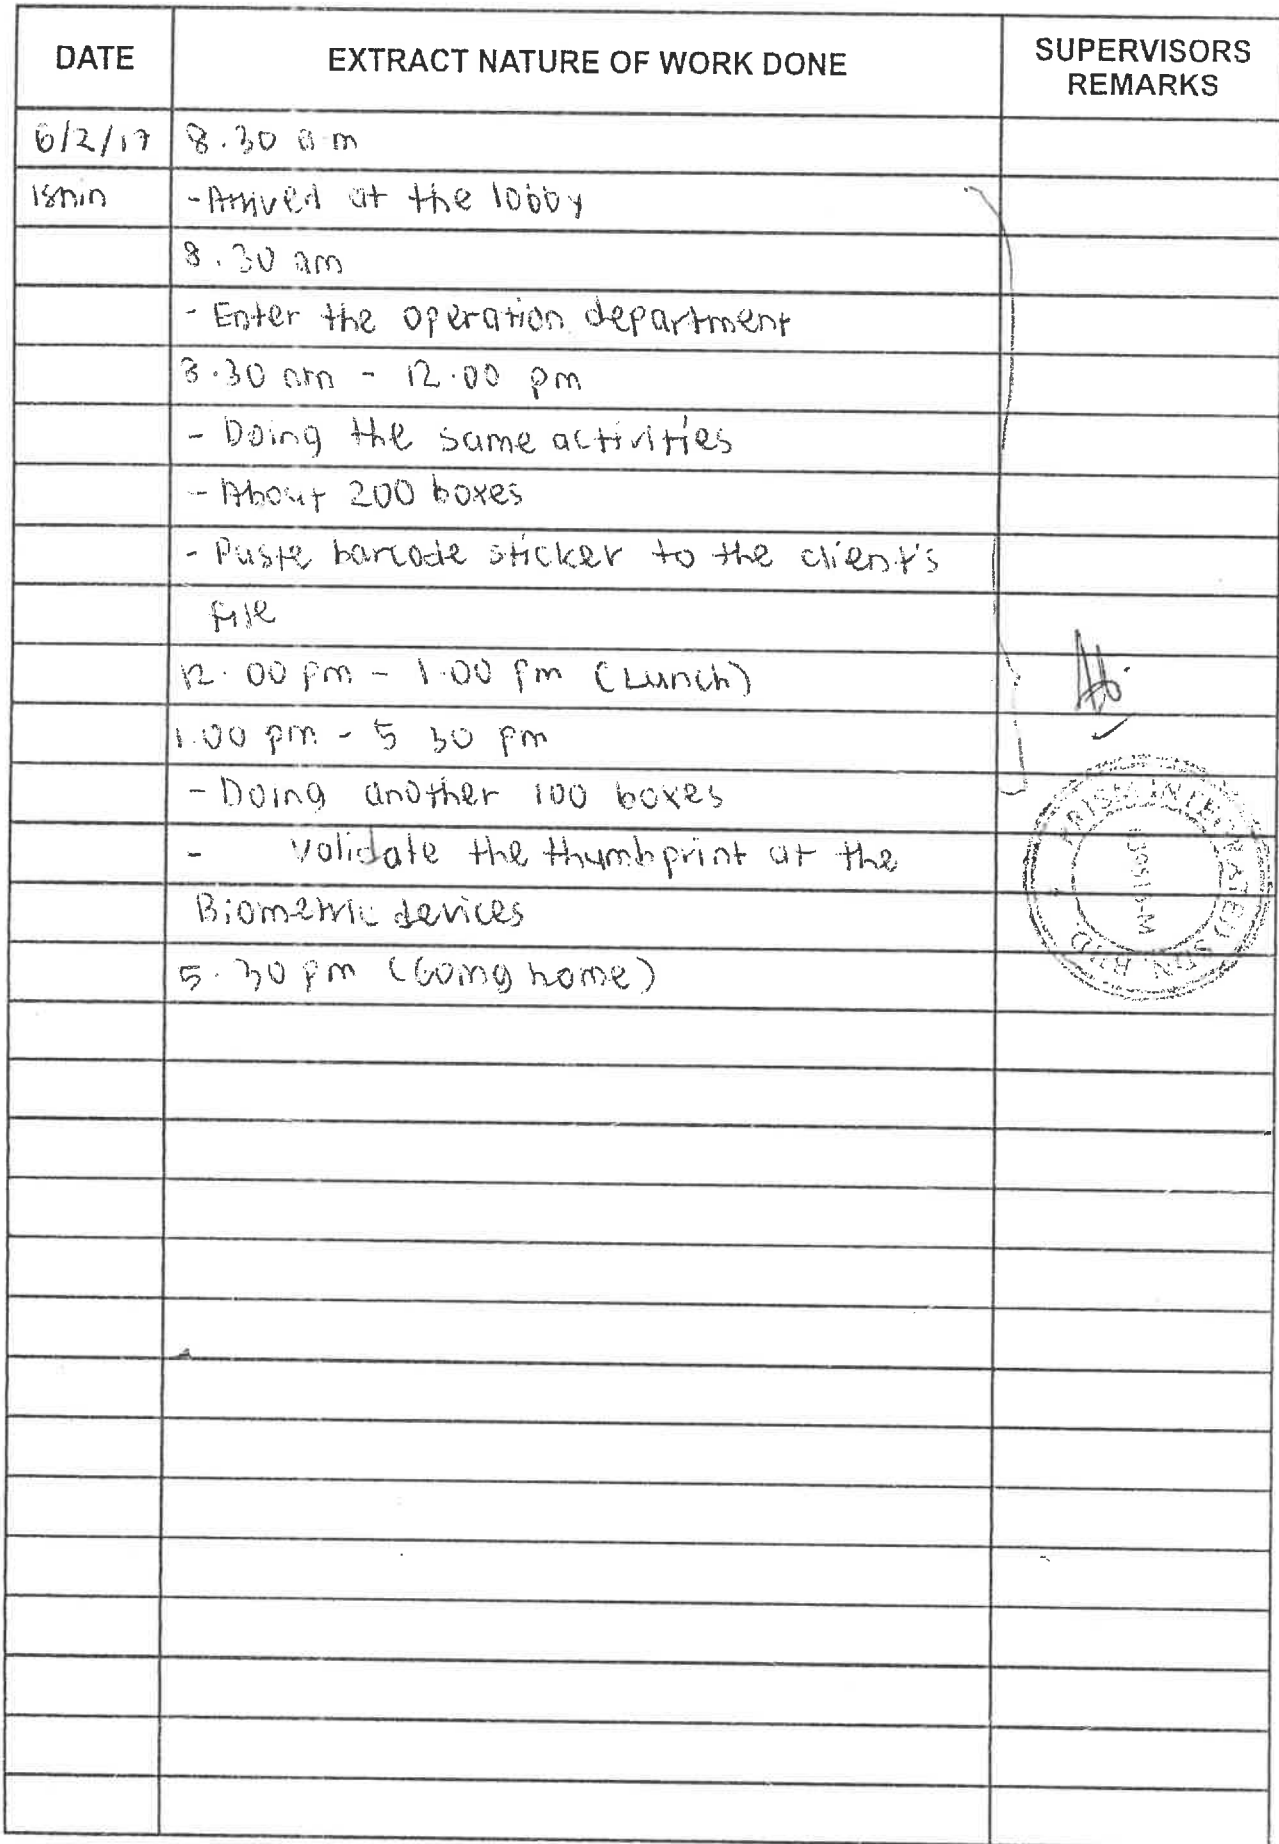 DATE EXTRACT NATURE OF WORK DONE SUPERVISORS REMARKS
6/2/17 8.30 am
Isnin - Arrived at the lobby
8.30 am
- Enter the operation department
8.30 am - 12.00 pm
- Doing the same activities
- About 200 boxes
- Paste barcode sticker to the client's
file
12.00 pm - 1.00 pm (Lunch)
1.00 pm - 5 30 pm
- Doing another 100 boxes
- Validate the thumbprint at the
Biometric devices
5.30 pm (Going home)
SDN BHD